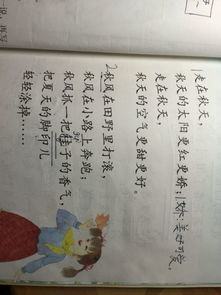 走在秋天，
秋天的太阳更红更娇，
走在秋天，
秋天的空气更甜更好。
2秋风在田野里打滚，
秋风在小路上奔跑；
秋风抓一把桂子的香气，
把夏天的脚印儿
轻轻涂掉……